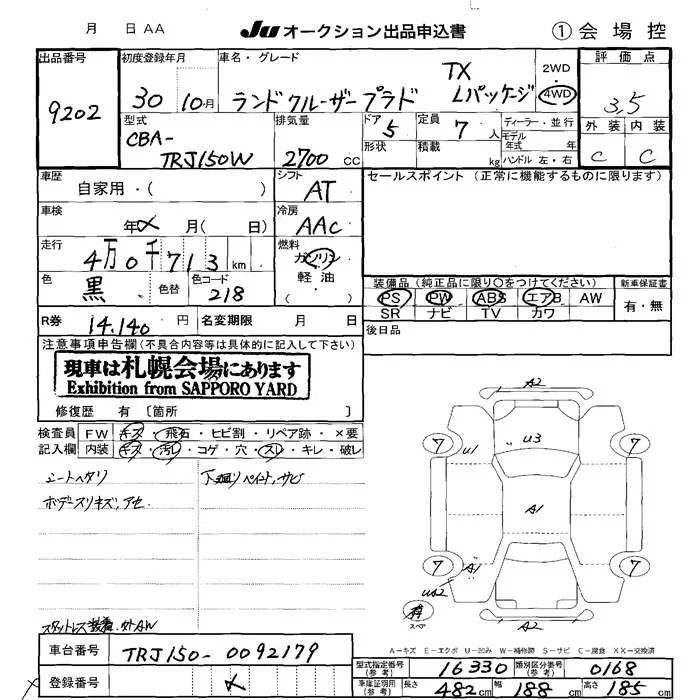 月 日 AA Ju オークション出品申込書 ① 会場控
出品番号 初度登録年月 車名・グレード 2WD・4WD 評価点
9202 30 10月 ランドクルーザープラド TX Lパッケージ 3,5
型式 排気量 ドア 定員 ディーラー・並行 外装 内装
CBA-TRJ150W 2700 cc 5 7人 モデル年式 年 C C
形状 積載 kg ハンドル 左・右
車歴 シフト セールスポイント (正常に機能するものに限ります)
自家用・( ) AT
車検 冷房
年 月( 日) AAC
走行 燃料
4万0千713 km ガソリン
色 色替 色コード 軽油
黒 218 ( )
装備品 (純正品に限り○をつけてください) 新車保証書
PS PW ABS エアB AW 有・無
SR ナビ TV カワ
R券 14.140 円 名変期限 月 日 後日品
注意事項申告欄(不具合内容等は具体的に記入して下さい)
現車は札幌会場にあります
Exhibition from SAPPORO YARD
修復歴 有 〔箇所 〕
検査員 FW キズ・飛石・ヒビ割・リペア跡・×要
記入欄 内装 キズ・汚レ・コゲ・穴・スレ・キレ・破レ
シートヘタリ 下廻りペイント,サビ
ボデースリキズ,アセ
スタットレス装着.外AW
A2
7 U1 U3 7
A1
7 A1 7
UA2
有 スペア A2
A-キズ E-エクボ U-凹み W-補修跡 S-サビ C-腐食 XX-交換済
車台番号 TRJ150-0092179
型式指定番号(参考) 16330 類別区分番号(参考) 0168
登録番号 ×
車庫証明用(参考) 長さ 482cm 幅 188cm 高さ 185cm